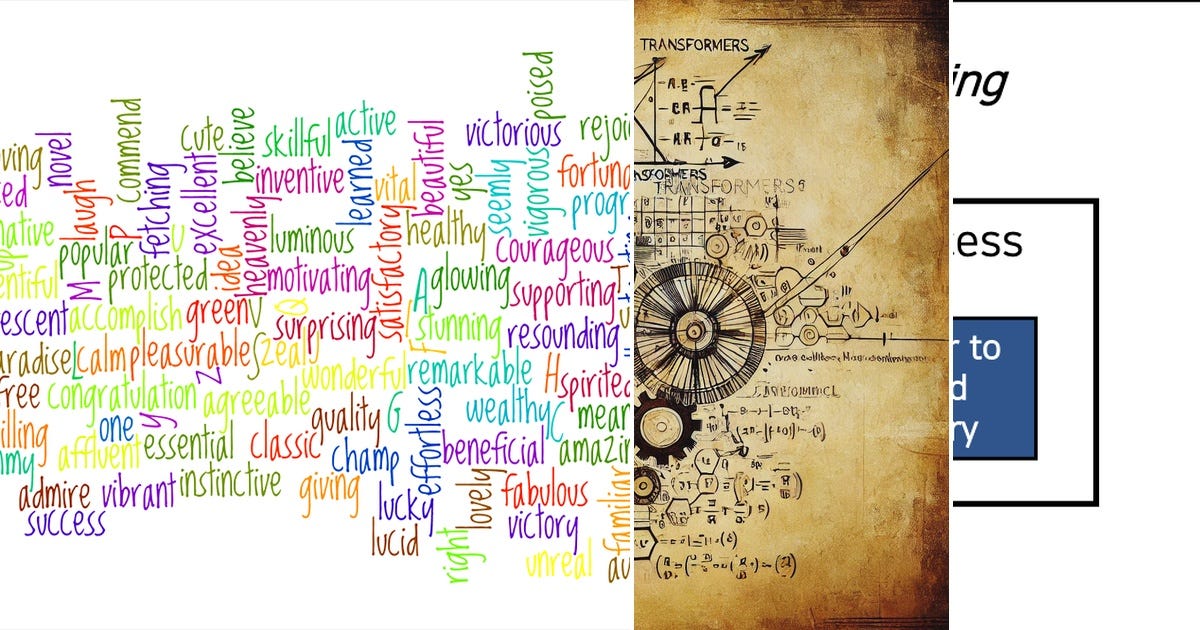 poised
commend
novel
cute
believe
skillful
active
victorious
rejoi
ving
laugh
fetching
excellent
inventive
learned
vital
beautiful
yes
seemly
vigorous
fortun
progr
native
popular
P
U
heavenly
luminous
satisfactory
healthy
courageous
entiful
M
protected
idea
motivating
A
glowing
supporting
escent
accomplish
green
V
Q
surprising
stunning
resounding
aradise
L
calm
pleasurable
S
zeal
wonderful
remarkable
H
spirited
free
congratulation
Z
agreeable
quality
G
effortless
wealthy
C
mean
illing
one
y
affluent
essential
classic
champ
beneficial
amazin
admire
vibrant
instinctive
giving
lucky
lovely
fabulous
familiar
success
lucid
right
victory
unreal
TRANSFORMERS
TRANSFORMERS
ing
cess
r to
d
ry